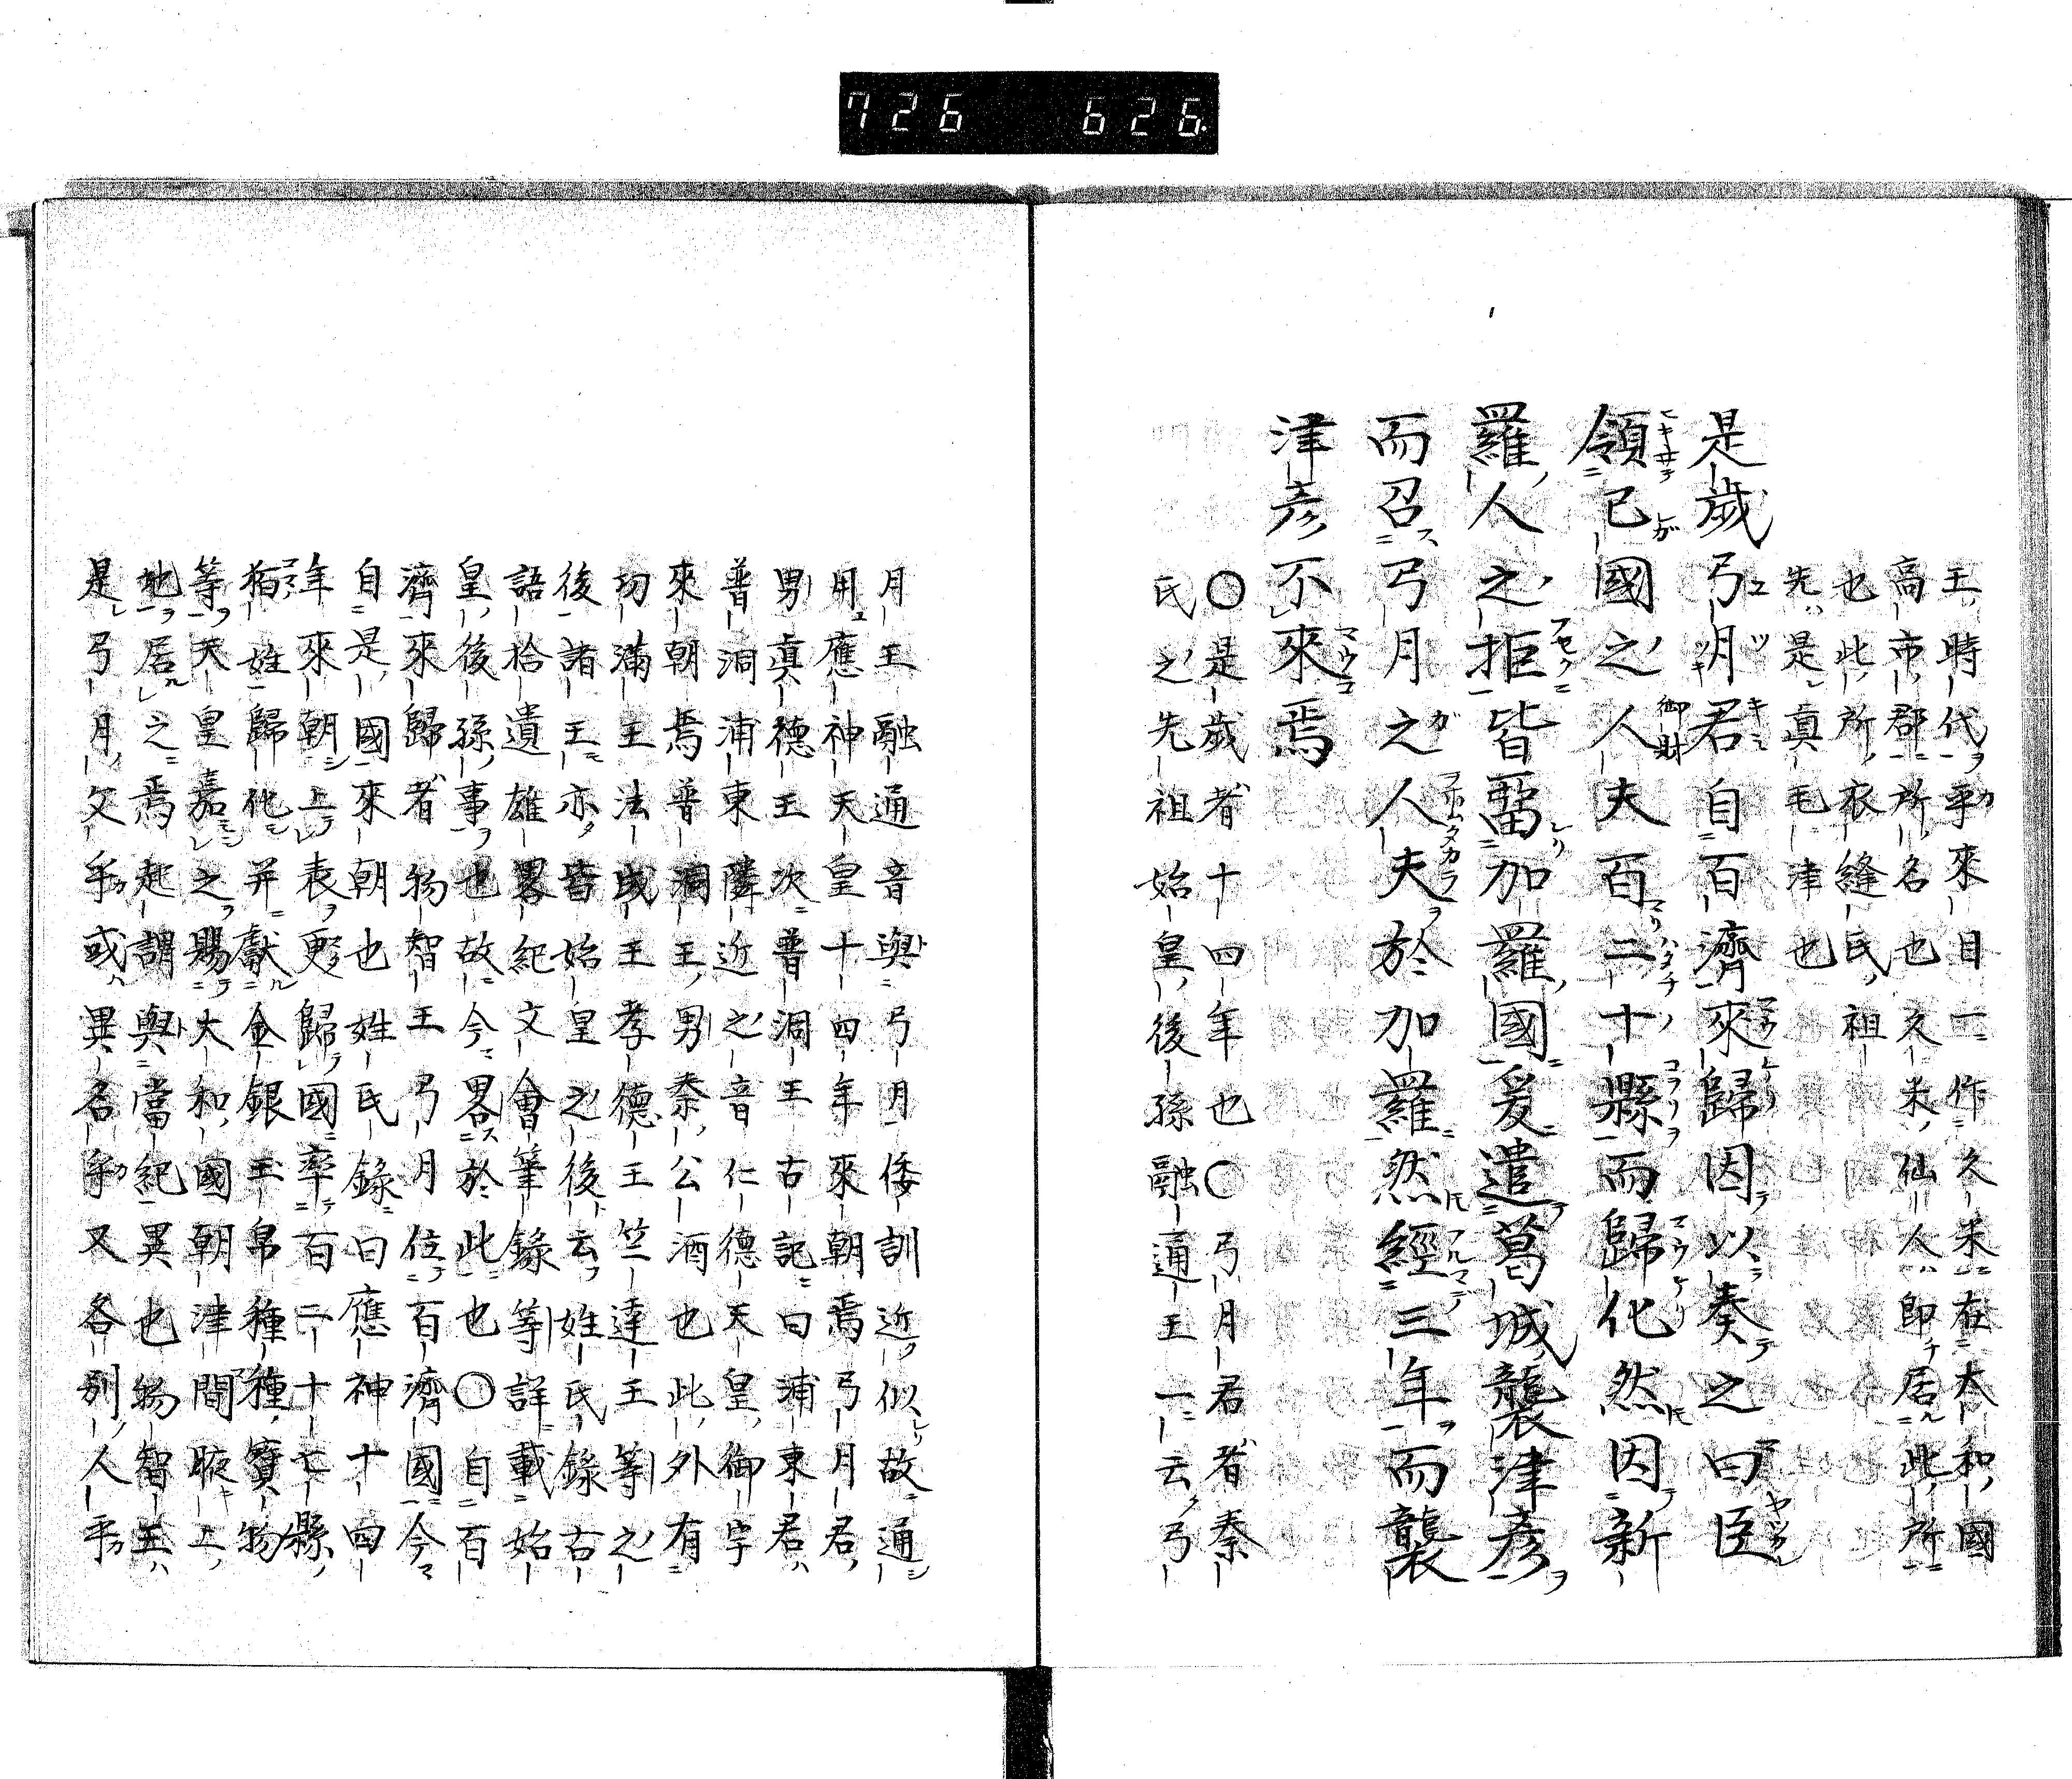 726 626
王時代乎來目一作久米在大和國
高市郡所名也久米仙人即居此所
也此所衣縫氏祖
先是真毛津也
是歲弓月君自百濟來歸因以奏之曰臣
領己國之人夫百二十縣而歸化然因新
羅人之拒皆留加羅國爰遣葛城襲津彥
而召弓月之人夫於加羅然經三年而襲
津彥不來焉
○是歲者十四年也○弓月君者秦
氏之先祖始皇後孫融通王一云弓
月王融通音與弓月倭訓近似故通
用應神天皇十四年來朝焉弓月君
男真德王次普洞王古記曰浦東君
普洞浦東隣近之音仁德天皇御宇
來朝焉普洞王男秦公酒也此外有
功滿王法成王孝德王竺達王等之
後諸王亦皆始皇之後云姓氏錄古
語拾遺雄畧紀文會筆錄等詳載始
皇後孫事也故今畧於此也○自百
濟來歸者物智王弓月位百濟國今
自是國來朝也姓氏錄曰應神十四
年來朝上表更歸國率百二十七縣
狛姓歸化并獻金銀玉帛種種寶物
等天皇嘉之賜大和國朝津間腋上
地居之焉起謂與當紀異也物智王
是弓月父乎或異名乎又各別人乎